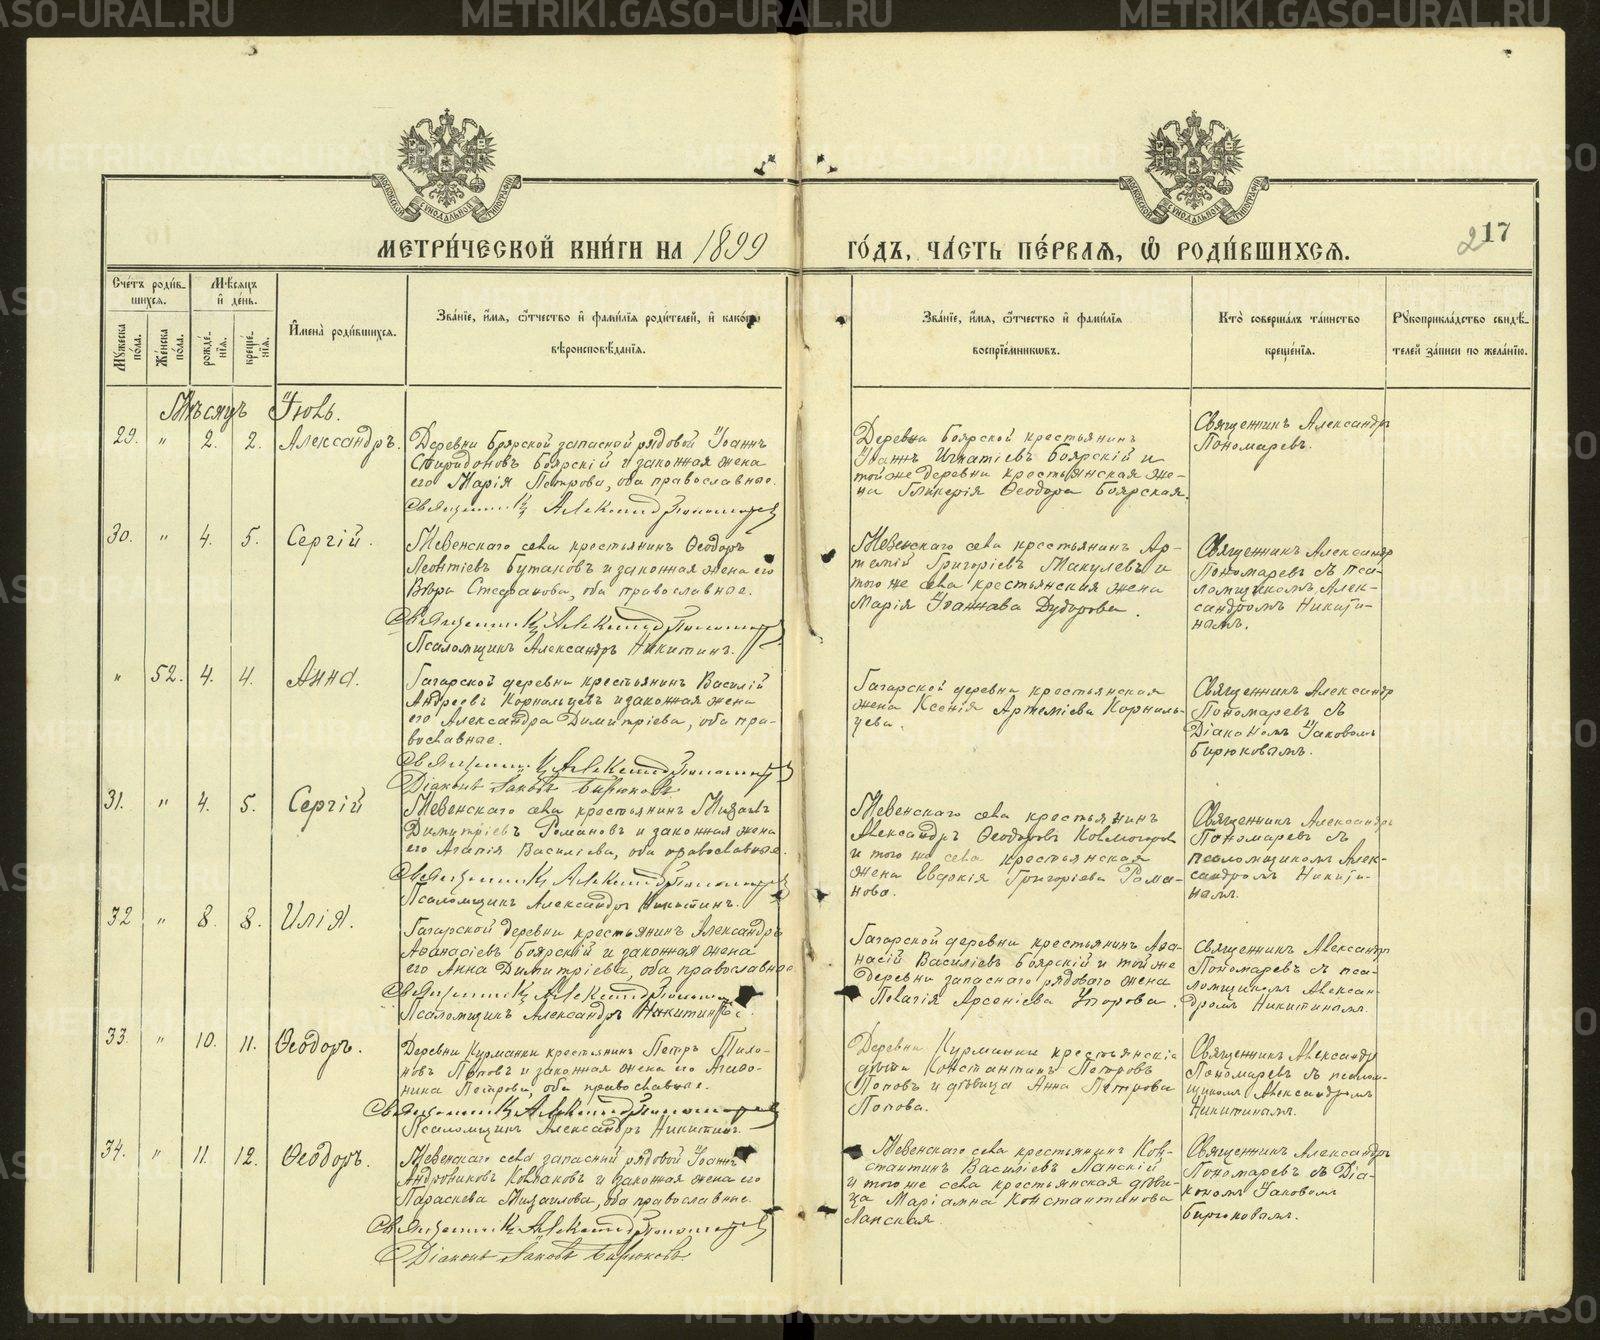 METRIKI.GASO-URAL.RU
МЕТРИ́ЧЕСКОЙ КНИ́ГИ НА 1899 ГО́ДЪ, ЧА́СТЬ ПЕ́РВАѦ, Ѡ҆ РОДИ́ВШИХСѦ.
217
Сче́тъ роди́в-
шихся.
Мѣ́сяцъ
и҆ де́нь.
Му́жеска
по́ла.
Же́нска
по́ла.
рожде́-
нїѧ.
креще́-
нїѧ.
И҆мена̀ роди́вшихся.
Зва́нїе, и҆́мѧ, ѻ҆́тчество и҆ фами́лїѧ роди́телей, и҆ како́гѡ
вѣроисповѣ́данїѧ.
Зва́нїе, и҆́мѧ, ѻ҆́тчество и҆ фами́лїѧ
воспрїе́мникѡвъ.
Кто̀ соверша́лъ та́инство
креще́нїѧ.
Рꙋкоприкла́дство свидѣ́-
телей за́писи по жела́нїю.
Мѣсяцъ Іюль.
29. " 2. 2. Александръ.
Деревни Боярской запасной рядовой Іоаннъ
Спиридоновъ Боярскій и законная жена
его Марія Петрова, оба православные.
Священникъ Александръ Пономаревъ
Деревни Боярской крестьянинъ
Іоаннъ Игнатіевъ Боярскій и
той же деревни крестьянская же-
на Гликерія Ѳеодора Боярская.
Священникъ Александръ
Пономаревъ.
30. " 4. 5. Сергій.
Мевенскаго села крестьянинъ Ѳеодоръ
Леонтіевъ Бутаковъ и законная жена его
Вѣра Стефанова, оба православные.
Священникъ Александръ Пономаревъ
Псаломщикъ Александръ Никитинъ.
Мевенскаго села крестьянинъ Ар-
темій Григоріевъ Макулевъ и
того же села крестьянская жена
Марія Іоаннова Дударова.
Священникъ Александръ
Пономаревъ съ пса-
ломщикомъ Алек-
сандромъ Никити-
нымъ.
" 52. 4. 4. Анна.
Гагарской деревни крестьянинъ Василій
Андреевъ Корнильцевъ и законная жена
его Александра Димитріева, оба пра-
вославные.
Священникъ Александръ Пономаревъ
Діаконъ Іаковъ Бирюковъ
Гагарской деревни крестьянская
жена Ксенія Артеміева Корниль-
цева.
Священникъ Александръ
Пономаревъ съ
Діакономъ Іаковомъ
Бирюковымъ.
31. " 4. 5. Сергій
Мевенскаго села крестьянинъ Михаилъ
Димитріевъ Романовъ и законная жена
его Агапія Василіева, оба православные.
Священникъ Александръ Пономаревъ
Псаломщикъ Александръ Никитинъ.
Мевенскаго села крестьянинъ
Александръ Ѳеодоровъ Колмогоровъ
и того же села крестьянская
жена Евдокія Григоріева Рома-
нова.
Священникъ Александръ
Пономаревъ съ
псаломщикомъ Алек-
сандромъ Никити-
нымъ.
32 " 8. 8. Илія.
Гагарской деревни крестьянинъ Александръ
Аѳанасіевъ Боярскій и законная жена
его Анна Димитріева, оба православные
Священникъ Александръ Пономаревъ
Псаломщикъ Александръ Никитинъ.
Гагарской деревни крестьянинъ Аѳа-
насій Василіевъ Боярскій и той же
деревни запаснаго рядоваго жена
Пелагія Арсеніева Упорова.
Священникъ Александръ
Пономаревъ съ пса-
ломщикомъ Алексан-
дромъ Никитинымъ.
33. " 10. 11. Ѳеодоръ.
Деревни Курманки крестьянинъ Петръ Тихо-
новъ Поповъ и законная жена его Агаѳо-
ника Петрова, оба православные.
Священникъ Александръ Пономаревъ
Псаломщикъ Александръ Никитинъ.
Деревни Курманки крестьянскіе
дѣти Константинъ Петровъ
Поповъ и дѣвица Анна Петрова
Попова.
Священникъ Александръ
Пономаревъ съ псалом-
щикомъ Александромъ
Никитинымъ.
34. " 11. 12. Ѳеодоръ.
Мевенскаго села запасный рядовой Іоаннъ
Андрониковъ Колпаковъ и законная жена его
Параскева Михаилова, оба православные.
Священникъ Александръ Пономаревъ
Діаконъ Іаковъ Бирюковъ.
Мевенскаго села крестьянинъ Кон-
стантинъ Василіевъ Ланскій
и того же села крестьянская дѣви-
ца Маріамна Константинова
Ланская.
Священникъ Александръ
Пономаревъ съ Діа-
кономъ Іаковомъ
Бирюковымъ.